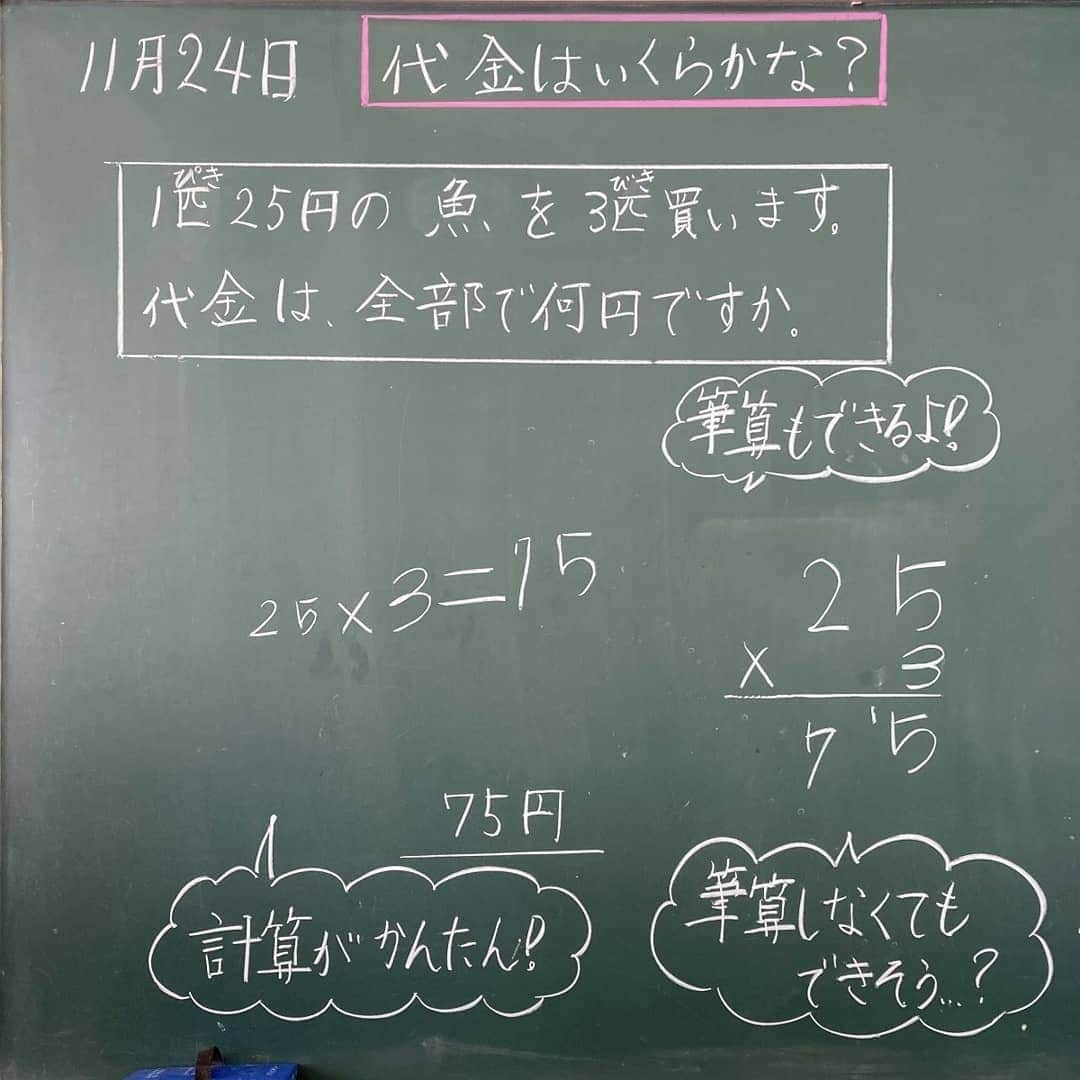 11月24日
代金はいくらかな?
1匹25円の魚を3匹買います。
ぴき
びき
代金は、全部で何円ですか。
筆算もできるよ!
25×3=75
25
× 3
7 1 5
75円
計算がかんたん!
筆算しなくても
できそう…?